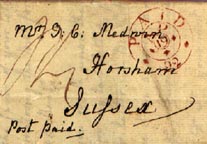 PAID
19
Mr. P. C. Medwin
Horsham
Sussex
Post Paid.